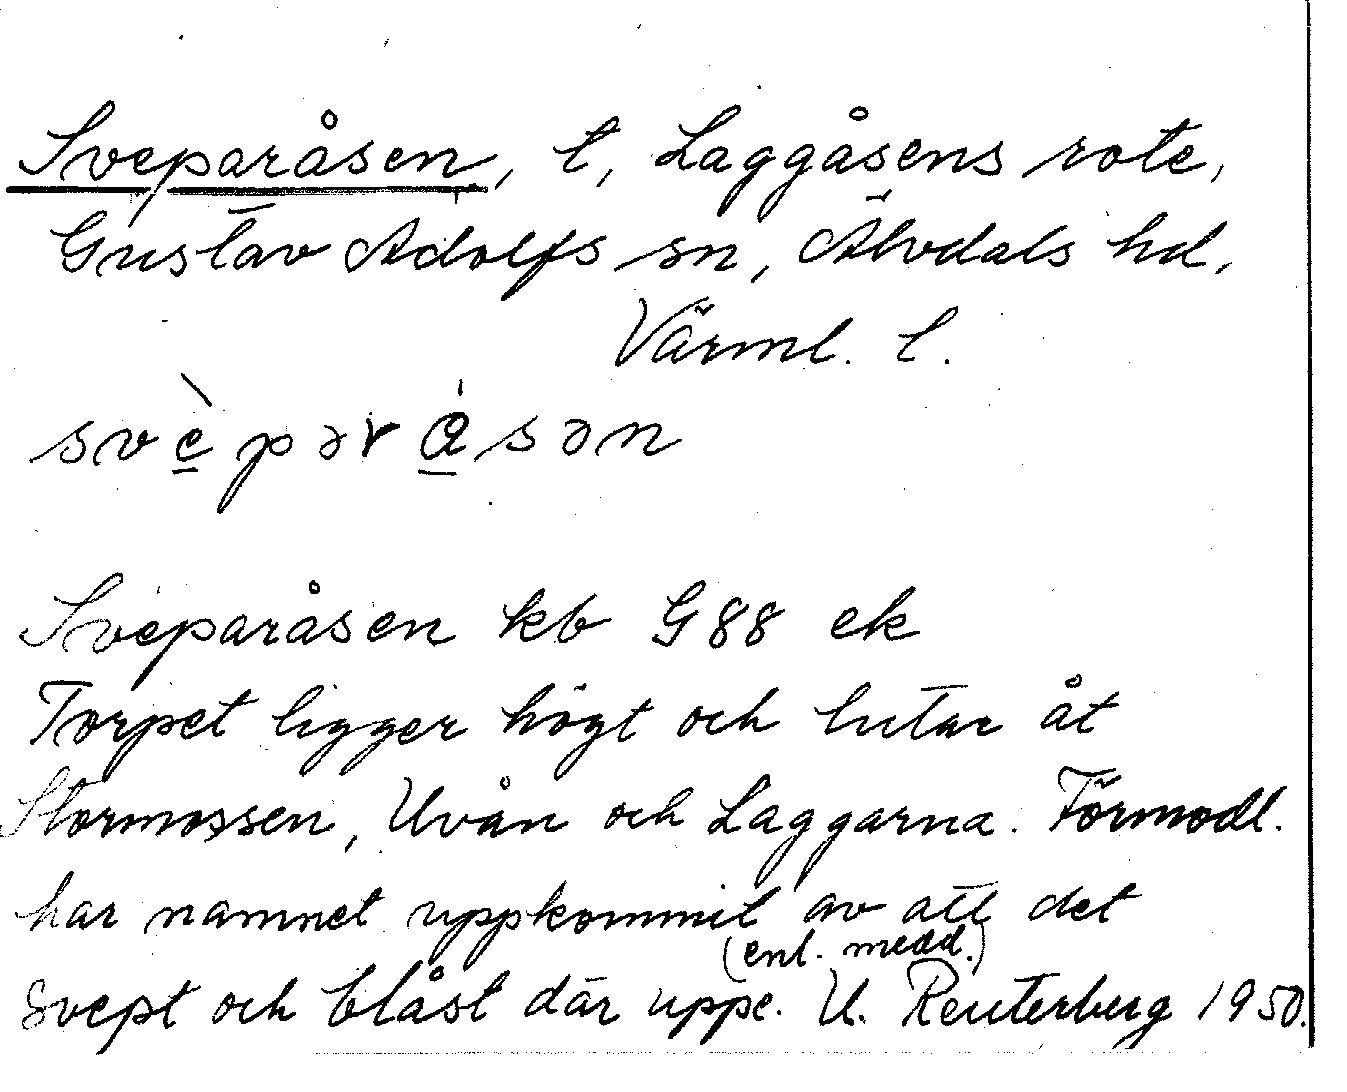 Sveparåsen, t, Laggåsens rote,
Gustav Adolfs sn, Älvdals hd,
Värml. l.
svè̲pərå̲sən
Sveparåsen kb G88 ek
Torpet ligger högt och lutar åt
Stormossen, Uvån och Laggarna. Förmodl.
har namnet uppkommit av att det
(enl. medd.)
svept och blåst där uppe. U. Reuterberg 1950.